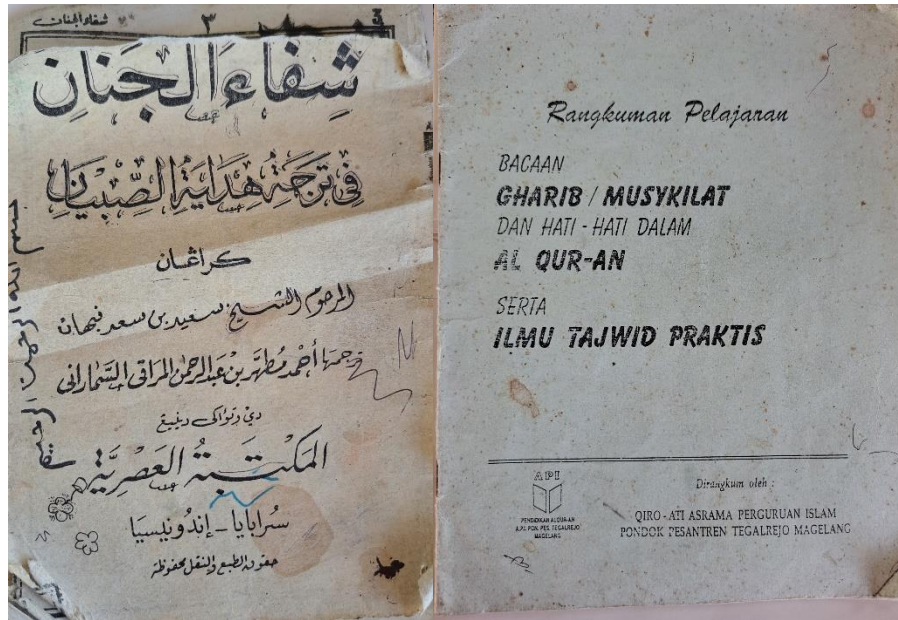 شفاء الجنان
٣
شِفَاءُ الْجَنَانِ
فِي تَرْجَمَةِ هِدَايَةِ الصِّبْيَانِ
كراڠان
المرحوم الشيخ سعيد بن سعد نبهان
ترجمها أحمد مُطَهَّر بن عبد الرحمن المراقي السَّماراني
دي وتواكى دينيڠ
المكتبةُ العَصْرِيَّة
سُرابايا - إندونيسيا
حقوق الطبع والنقل محفوظة
بسم الله الرحمن الرحيم
Rangkuman Pelajaran
BACAAN
GHARIB / MUSYKILAT
DAN HATI - HATI DALAM
AL QUR-AN
SERTA
ILMU TAJWID PRAKTIS
API
PENDIDIKAN ALQUR-AN
A.P.I. PON. PES. TEGALREJO
MAGELANG
Dirangkum oleh :
QIRO-ATI ASRAMA PERGURUAN ISLAM
PONDOK PESANTREN TEGALREJO MAGELANG